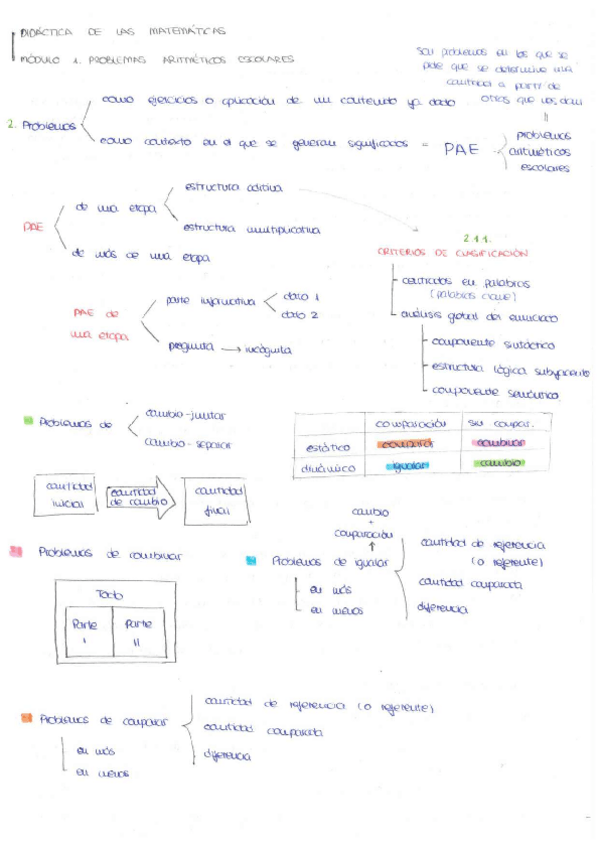 DIDÁCTICA DE LAS MATEMÁTICAS
MÓDULO 1. PROBLEMAS ARITMÉTICOS ESCOLARES
son problemas en los que se
pide que se determine una
cantidad a partir de
otras que nos dan
2. Problemas
como ejercicios o aplicación de un contenido ya dado
como contexto en el que se generan significados = PAE
problemas
aritméticos
escolares
PAE
de una etapa
estructura aditiva
estructura multiplicativa
de más de una etapa
2.1.1.
CRITERIOS DE CLASIFICACIÓN
centrados en palabras
(palabras clave)
análisis global del enunciado
componente sintáctico
estructura lógica subyacente
componente semántico.
PAE de
una etapa
parte informativa
dato 1
dato 2
pregunta → incógnita
Problemas de
cambio-juntar
cambio-separar
comparación
sin compar.
estático
comparar
combinar
dinámico
igualar
cambio
cantidad
inicial
cantidad
de cambio
cantidad
final
Problemas de combinar
Todo
Parte
I
Parte
II
cambio
+
comparación
Problemas de igualar
en más
en menos
cantidad de referencia
(o referente)
cantidad comparada
diferencia
Problemas de comparar
en más
en menos
cantidad de referencia (o referente)
cantidad comparada
diferencia